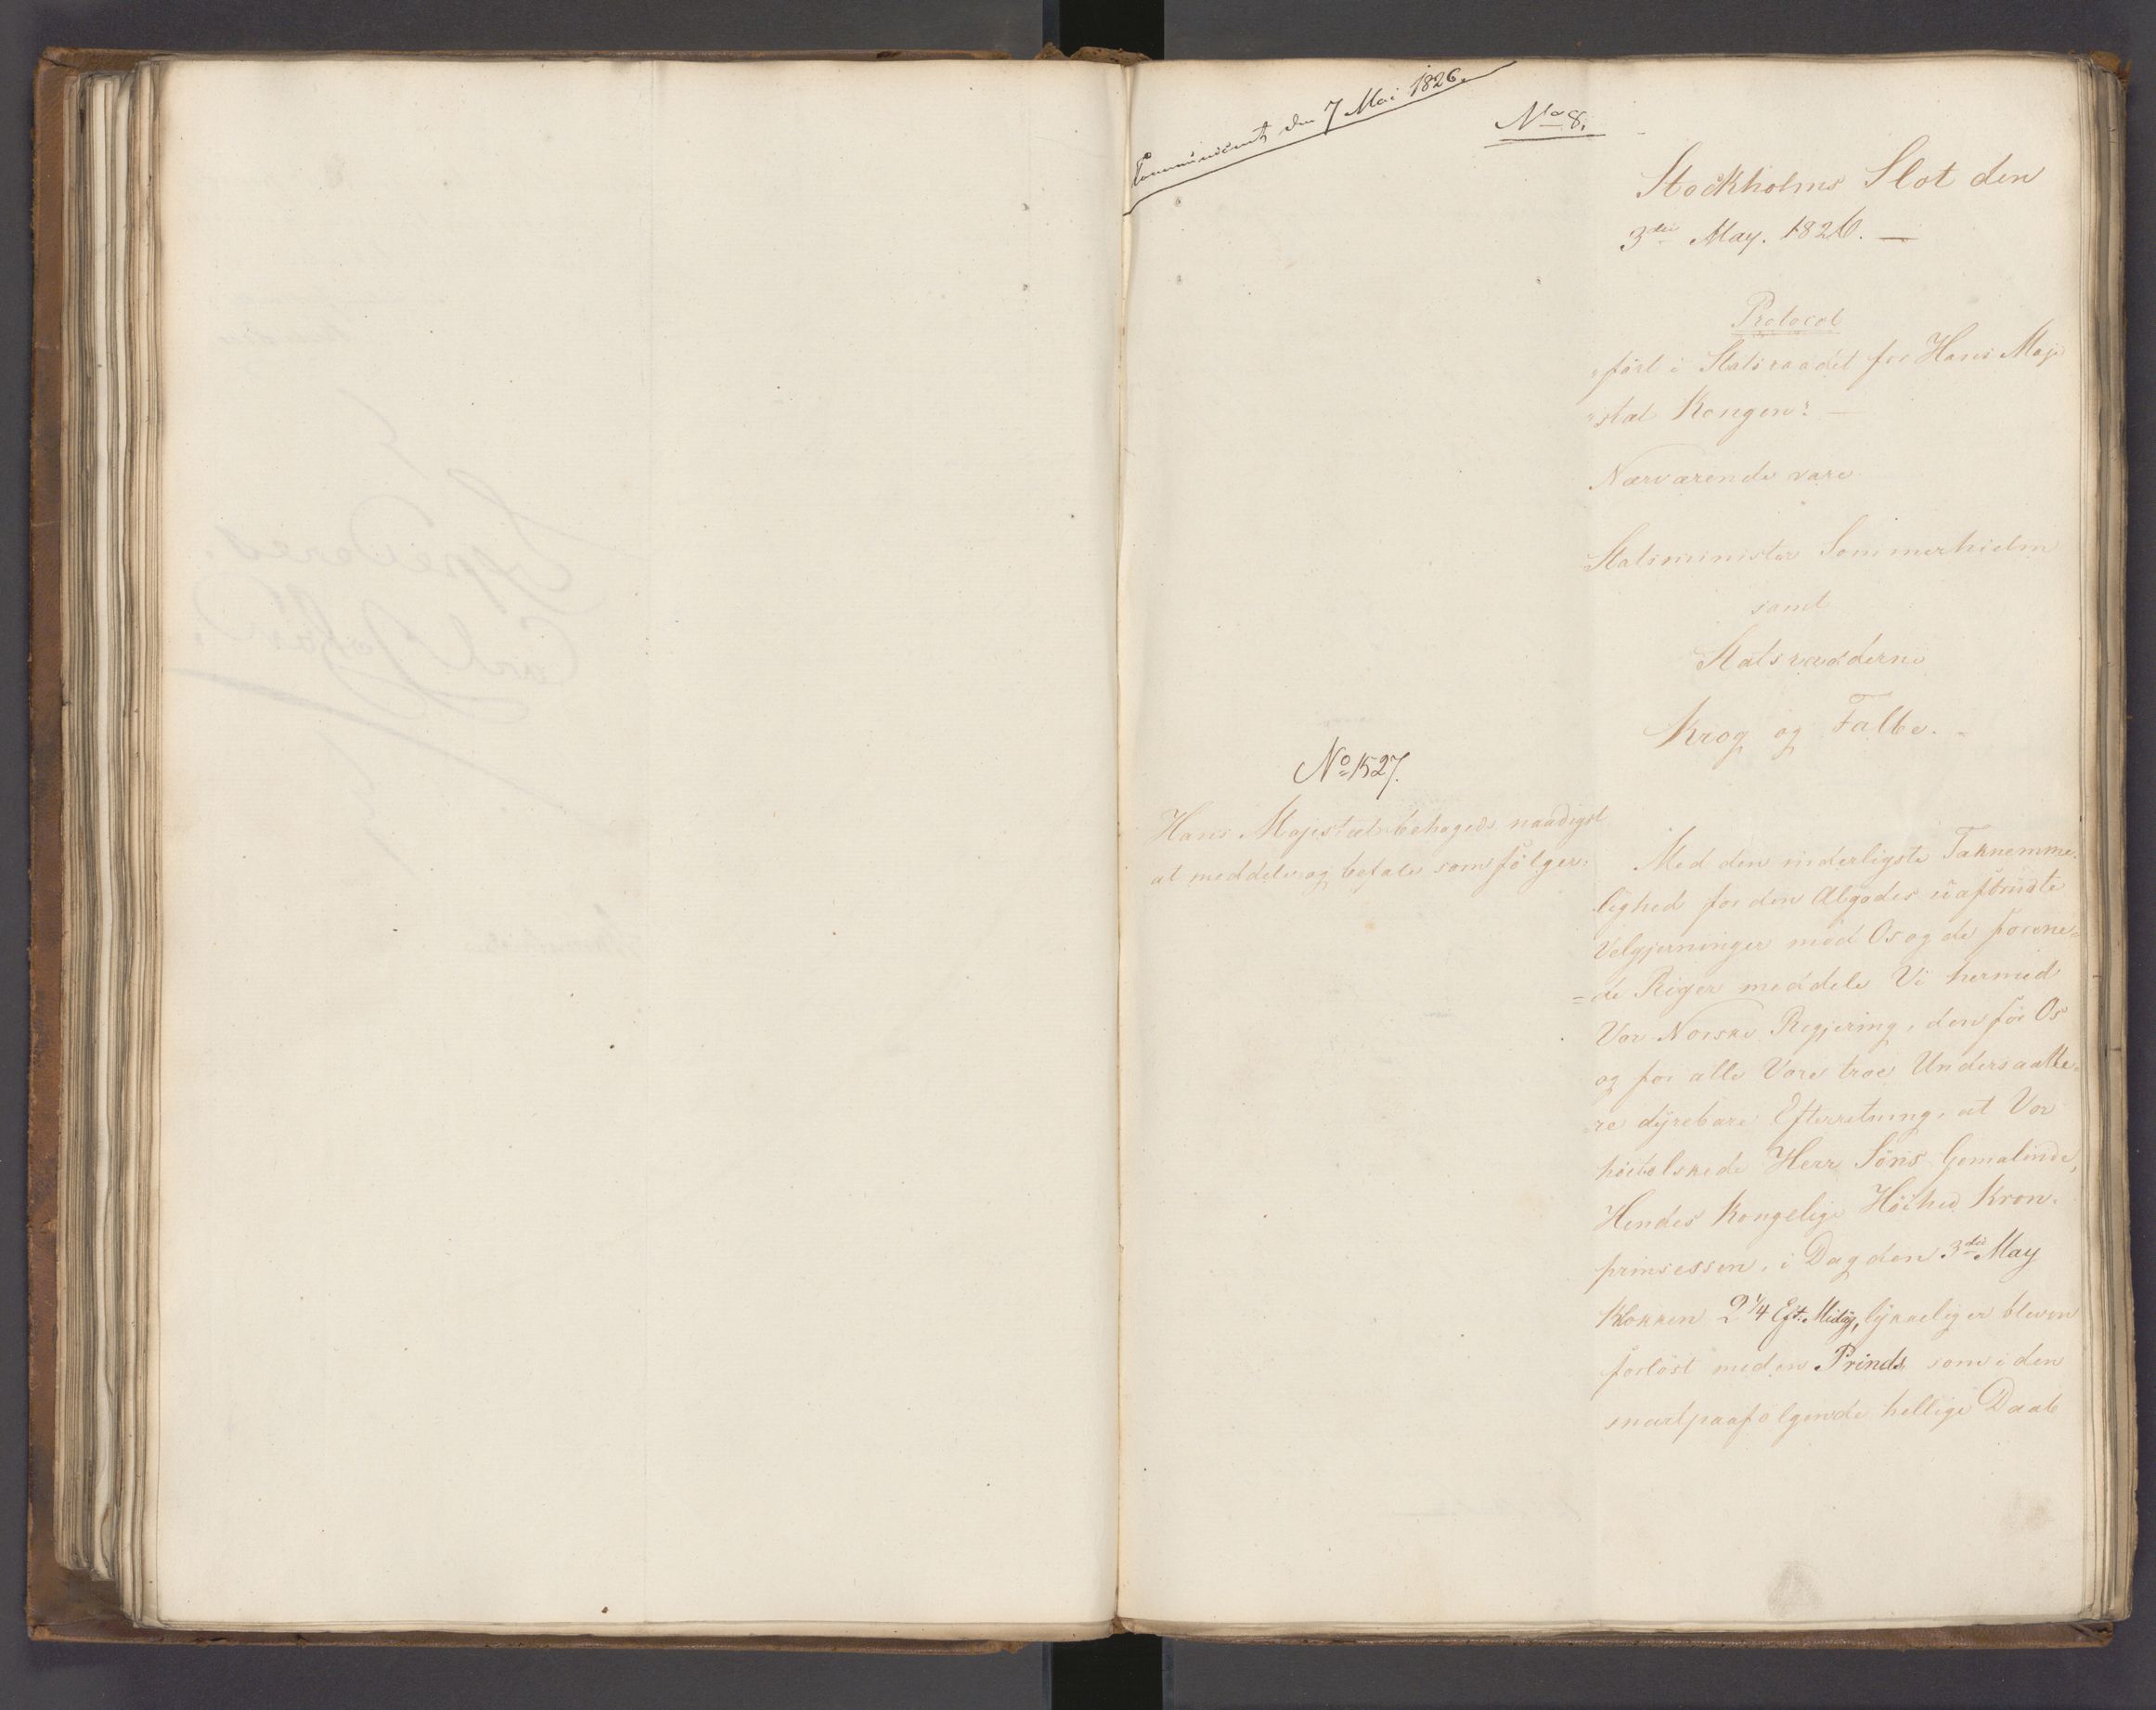 Communiceret den 7 Mai 1826.
No 8.
Stockholms Slot den
3die May. 1826. —
Protocol
fört i Statsraadet for Hans Maje
stæt Kongen: —
Nærværende vare
Statsminister Sommerhielm
samt
Statsraadderne
Krog og Falbe. -
No 1527.
Hans Majestæt behagede naadigst
at meddele og befale som fölger:
Med den inderligste Taknemme-
lighed for den Algodes uafbrudte
Velgjerninger mod Os og de forene=
=de Riger meddele Vi hermed
Vor Norske Regjering, den för Os
og for alle Vore troe Undersaatte-
re dyrebare Efterretning, at Vor
höitelskede Herr Söns Gemalinde,
Hendes Kongelige Höihed Kron-
prinsessen, i Dag den 3die May
Klokken 2 1/4 Eft. Midg, lykkelig er bleven
forlöst med en Prinds som i den
snartpaafolgende hellige Daab